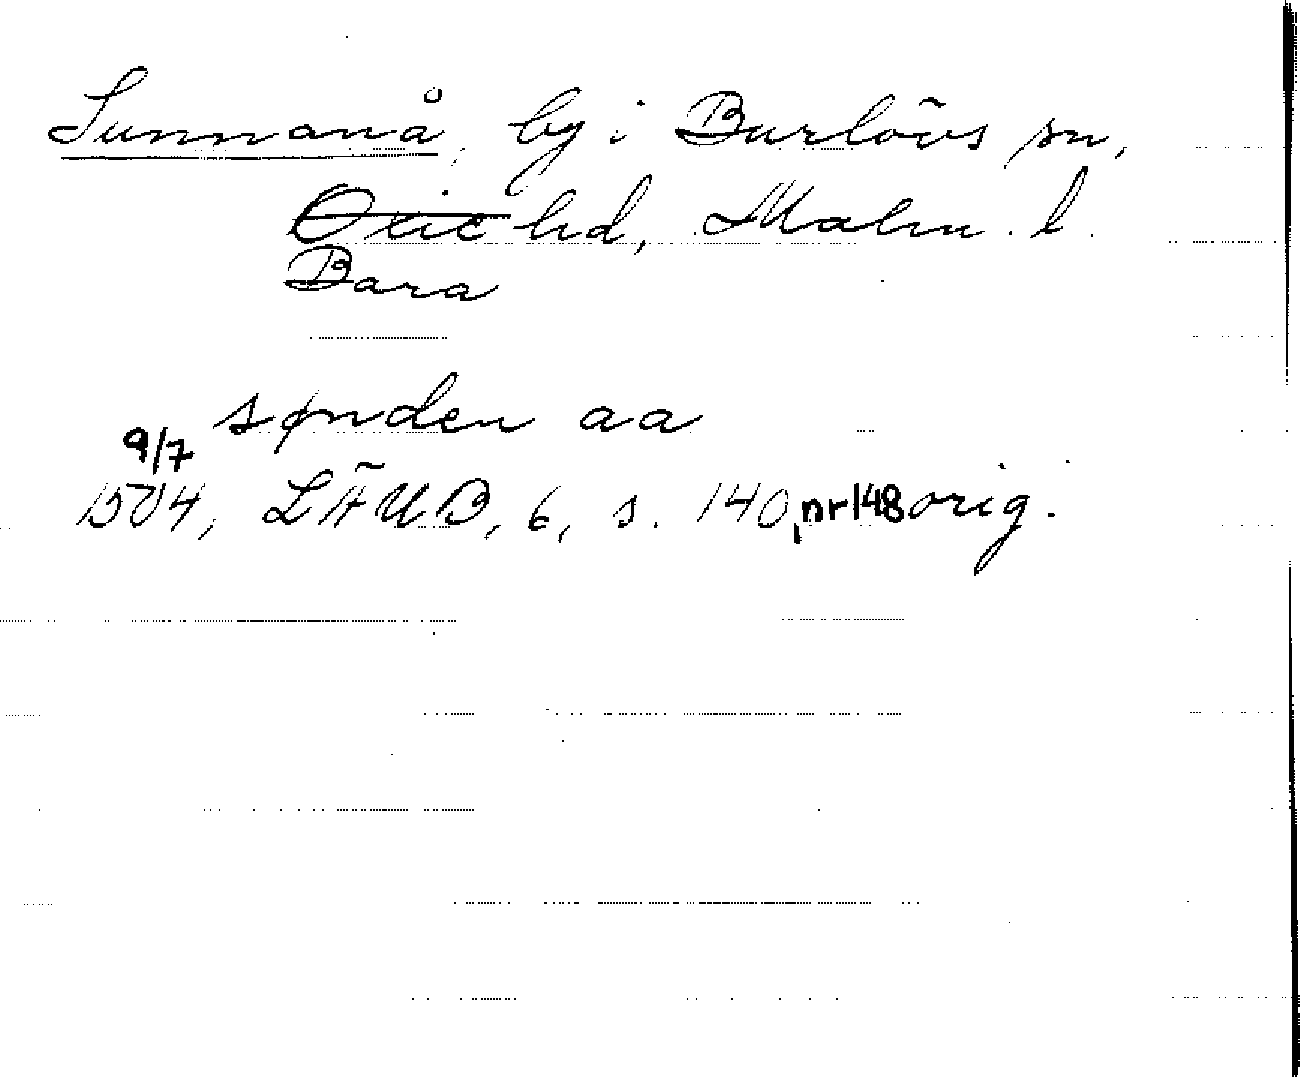 Sunnanå, by i Burlövs sn,
Oxie hd, Malm. l.
Bara
sønden aa
9/7
1504, LÄUB, 6, s. 140, nr 148 orig.